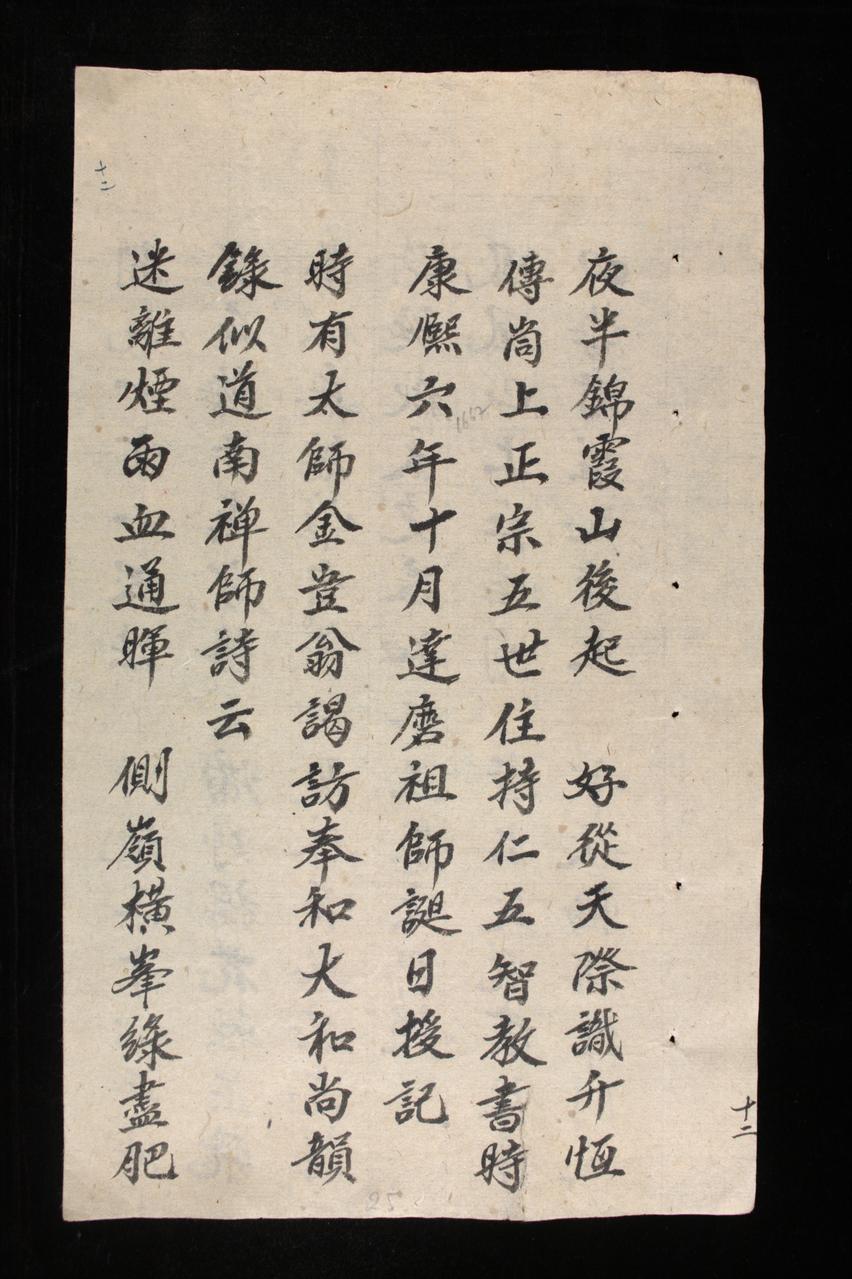 夜半錦霞山後起 好從天際識升恆
傳尚上正宗五世住持仁五智教書時
康熈六年十月達磨祖師誕日授記
1667
時有太師金豈翁謁訪奉和大和尚韻
錄似道南禅師詩云
迷離煙雨血通暉 側嶺橫峯綠盡肥
十二
十二
25